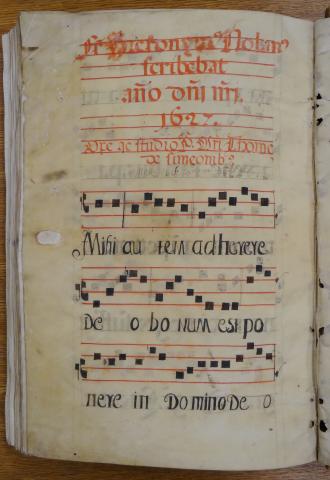 Fr Hieronymus Notar
scribebat
año dñi ñri
1627.
Ore ac studio P. Mri Thome
de simeonibs
Mihi au tem adherere
De o bonum est po
nere in Domino De o